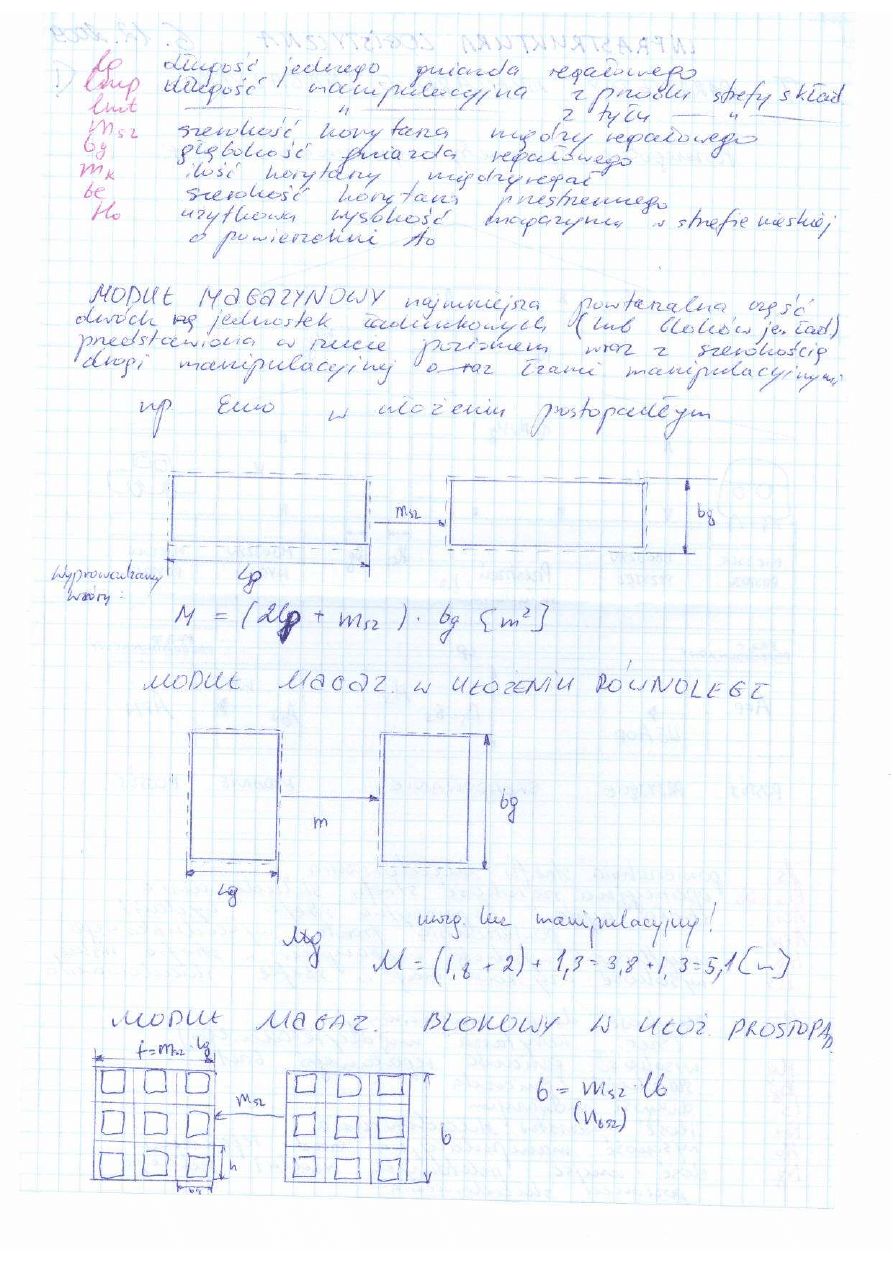 INFRASTRUKTURA LOGISTYCZNA 5.12.2009
lg długość jednego gniazda regałowego
lmp długość manipulacyjna z przodu strefy skład.
lmt —— " —— z tyłu —— " ——
msz szerokość korytarza między regałowego
bg głębokość gniazda regałowego
mk ilość korytarzy międzyregał
be szerokość korytarza przestrzennego
Ho użytkowa wysokość magazynu w strefie
o powierzchni Ao
MODUŁ MAGAZYNOWY najmniejsza powtarzalna część
dwóch jednostek ładunkowych (lub bloków jes ład)
przedstawiona w rzucie poziomem wraz z szerokością
drogi manipulacyjnej oraz luzami manipulacyjnymi
np Euro w ułożeniu prostopadłym
msz
bg
Lg
Wyprowadzamy
wzory:
M = (2lg + msz) · bg [m²]
MODUŁ MAGAZ. W UŁOŻENIU RÓWNOLEGŁ
m
bg
Lg
uwzg. luz manipulacyjny!
M = (1,8 + 2) + 1,3 = 3,8 + 1,3 = 5,1 [m]
MODUŁ MAGAZ. BLOKOWY W UŁOŻ. PROSTOPAD.
f = msz · lg
msz
b
h
b = msz · lb
(nbsz)